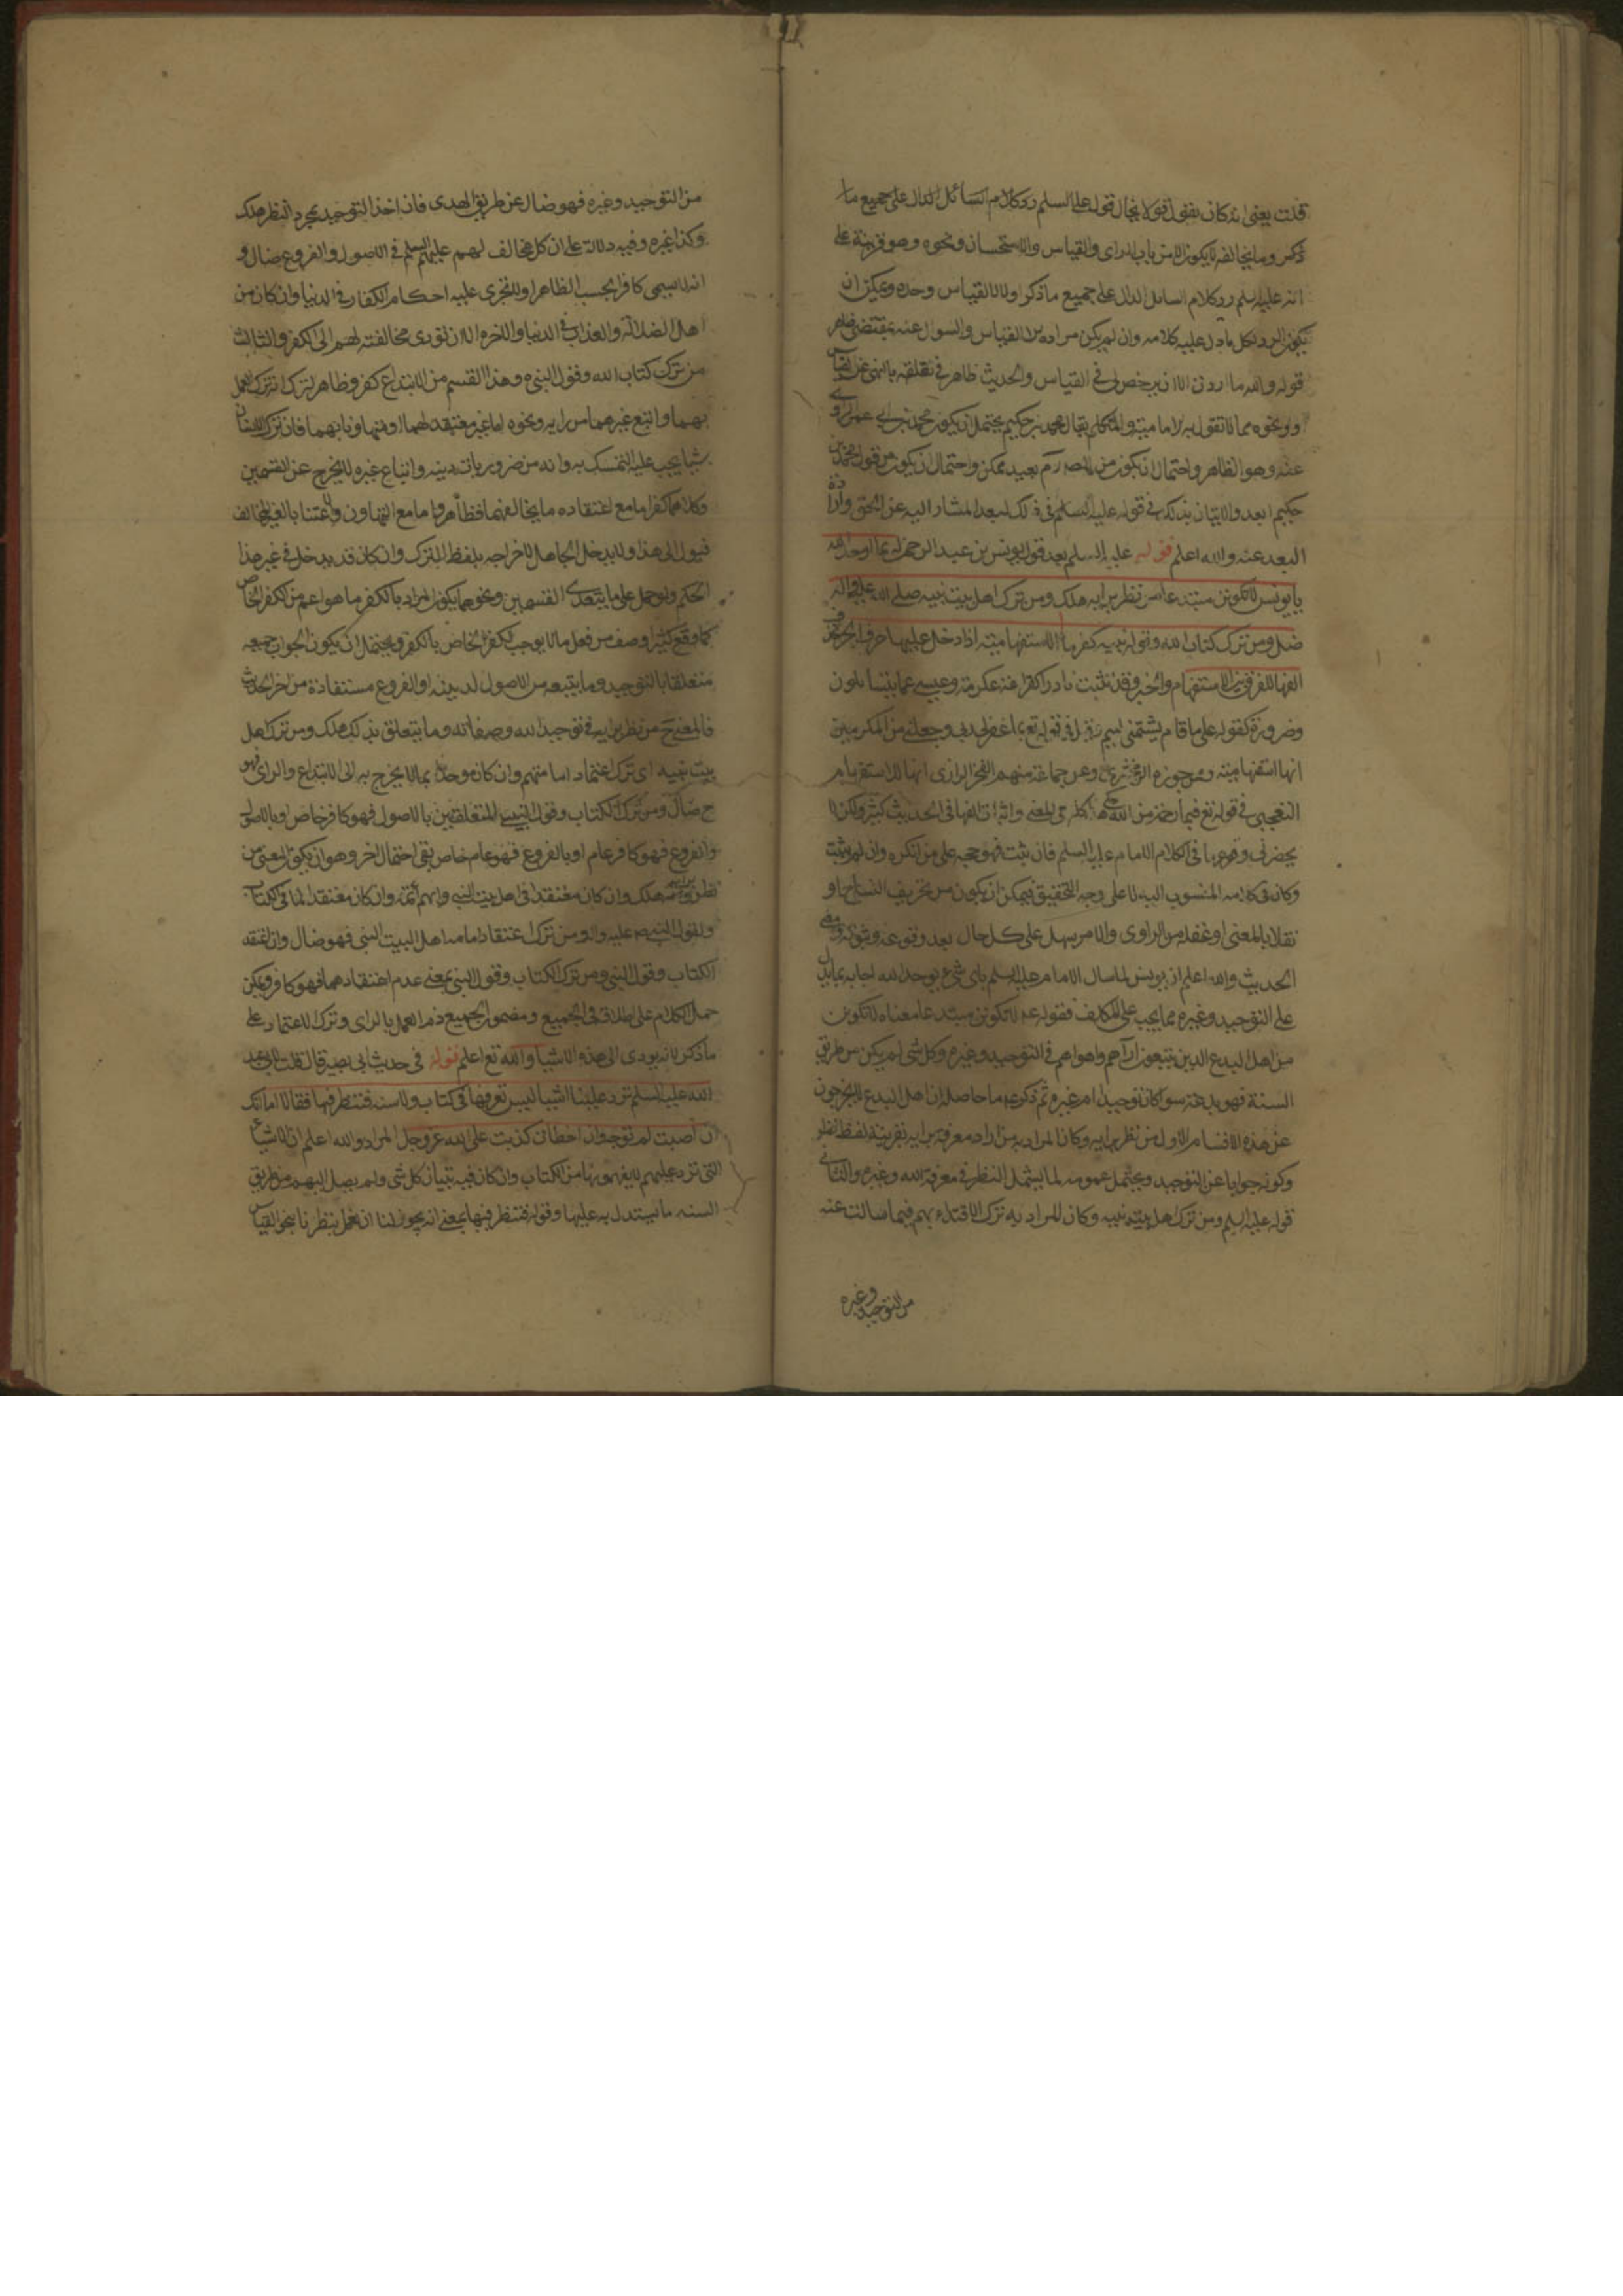 قلت يعني انه كان يقول قولا يخال قوله عليه السلم رد كلام السائل الدال على جميع ما
ذكر وما يخالفه لا يكون الا من باب الراي والقياس والاستحسان ونحوه وهو قرينة على
انه عليه سلم رد كلام السائل الدال على جميع ما ذكر اولا لا القياس وحده ويمكن ان
يكون الرد لكل ما دل عليه كلامه وان لم يكن مراده الا القياس والسوال عنه بمقتضى ظاهر
قوله والله ما اردت الا ان يرخص لي في القياس والحديث ظاهر في تعلقه بالنهي عن القياس
ونحوه مما لا تقول به الامامية والمتكلم بقال محمد بن حكيم يحتمل ان يكون محمد بن ابي عمير الراوي
عنه وهو الظاهر واحتمال ان يكون من المصنف بعيد ممكن واحتمال ان يكون من قول محمد بن
حكيم ابعد والاتيان بذلك في قوله عليه السلم في ذلك لبعد المشار اليه عن الحق وارادة
البعد عنه والله اعلم قوله عليه السلم بعد قول يونس بن عبد الرحمن له بما اوحد الله
يا يونس لا تكونن مبتدعا من نظر برايه هلك ومن ترك اهل بيت نبيه صلى الله عليه واله
ضل ومن ترك كتاب الله وقول نبيه كفر ما الاستفهامية اذا دخل عليها حرف الجر حذف
الفها للفرق بين الاستفهام والخبر وقد تثبت نادرا كقراءة عكرمة وعيسى عما يتسائلون
وضرورة كقوله على ما قام يشتمني لئيم وقيل في قوله تع بما غفر لي ربي وجعلني من المكرمين
انها استفهامية وممن جوزه الزمخشري وعن جماعة منهم الفخر الرازي انها للاستفهام
التعجبي في قوله تع فبما رحمة من الله واثبات الفها في الحديث كثير ولكن لا
يحضرني وقوعها في كلام الامام عليه السلم فان ثبت فهو حجة على من انكره وان لم يثبت
وكان في كلامه المنسوب اليه لا على وجه التحقيق فيمكن ان يكون من تحريف النساخ او
نقلا بالمعنى او غفلة من الراوي والامر سهل على كل حال بعد وقوعه وثبوته ومعنى
الحديث والله اعلم ان يونس لما سال الامام عليه السلم باي شيء يوحد الله اجابه بما يدل
على التوحيد وغيره مما يجب على المكلف فقوله عم لا تكونن مبتدعا معناه لا تكونن
من اهل البدع الذين يتبعون آراءهم واهواءهم في التوحيد وغيره وكل شي لم يكن من طريق
السنة فهو بدعة سوا كان توحيدا ام غيره ثم ذكر عم ما حاصله ان اهل البدع لا يخرجون
عن هذه الاقسام الاول من نظر برايه وكان المراد به من اراد معرفة برايه بقرينة لفظ نظر
وكونه جوابا عن التوحيد ويحتمل عمومه لما يشمل النظر في معرفة الله وغيره والثاني
قوله عليه السلم ومن ترك اهل بيت نبيه وكان المراد به ترك الاقتداء بهم فيما سالت عنه
من التوحيد وغيره
من التوحيد وغيره فهو ضال عن طريق الهدى فان اخذ التوحيد بمجرد النظر هلك
وكذا غيره وفيه دلالة على ان كل مخالف لهم عليهم السلم في الاصول والفروع ضال و
انه لا يسمى كافرا بحسب الظاهر ولا تجري عليه احكام الكفار في الدنيا وان كان من
اهل الضلالة والعذاب في الدنيا والاخرة الا ان تؤدي مخالفته لهم الى الكفر والثالث
من ترك كتاب الله وقول النبي وهذا القسم من الابتداع كفر وظاهر الترك انه ترك العمل
بهما واتبع غيرهما من رايه ونحوه اما غير معتقد لهما او متهاونا بهما فان ترك الانسان
شيا يجب عليه التمسك به وانه من ضروريات دينه واتباع غيره لا يخرج عن القسمين
وكلاهما كفر اما مع اعتقاده ما يخالفهما فظاهر واما مع التهاون والاعتنا بالغير المخالف
فيول الى هذا ولا يدخل الجاهل لاخراجه بلفظ الترك وان كان قد يدخل في غير هذا
الحكم ولو حمل على ما يتعدى القسمين ونحوهما يكون المراد بالكفر ما هو اعم من الكفر الخاص
كما وقع كثيرا وصف من فعل ما لا يوجب الكفر الخاص بالكفر ويحتمل ان يكون الجواب جميعه
متعلقا بالتوحيد وما يتبعه من الاصول لدينه او الفروع مستفادة من اخر الحديث
فالمعنى ح من نظر برايه في توحيد الله وصفاته وما يتعلق بذلك هلك ومن ترك اهل
بيت نبيه اي ترك اعتماد امامتهم وان كان موحدا بما لا يخرج به الى الابتداع والراي فهو
ح ضال ومن ترك الكتاب وقول النبي المتعلقين بالاصول فهو كافر خاص او بالاصول
والفروع فهو كافر عام او بالفروع فهو عام خاص بقي احتمال اخر وهو ان يكون المعنى من
نظر برايه هلك وان كان معتقدا في اهل بيت النبي وانهم ائمة وان كان معتقدا لما في الكتاب
ولقول النبي صلى الله عليه واله ومن ترك اعتقاد امامة اهل البيت النبي فهو ضال وان اعتقد
الكتاب وقول النبي ومن ترك الكتاب وقول النبي بمعنى عدم اعتقادهما فهو كافر ويمكن
حمل الكلام على اطلاقه في الجميع ومضمون الجميع ذم العمل بالراي وترك الاعتماد على
ما ذكر لانه يودي الى هذه الاشيا والله تع اعلم قوله في حديث ابي بصير قال قلت لابي عبد
الله عليه السلم ترد علينا اشيا ليس نعرفها في كتاب ولا سنة فننظر فيها فقال لا اما انك
ان اصبت لم توجر وان اخطات كذبت على الله عز وجل المراد والله اعلم ان الاشياء
التي ترد عليهم لا يفهمونها من الكتاب وان كان فيه تبيان كل شي ولم يصل اليهم من طريق
السنة ما يستدل به عليها وقوله فننظر فيها بمعنى انه يجوز لنا ان نعمل بنظرنا بنحو القياس